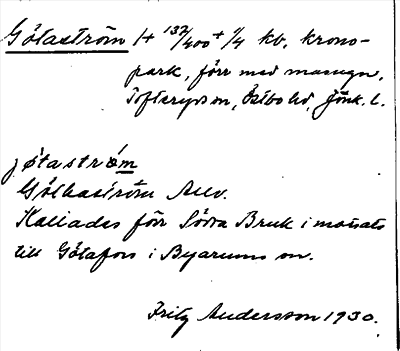 Götaström 1+ 137/400 + 1/4 kb, krono-
park, förr med masugn,
Tofteryds sn, Östbo hd, Jönk. l.
jøtaströ́m
Götaström
Kallades förr Södra Bruk i motsats
till Götafors i Byarums sn.
Fritz Andersson 1930.